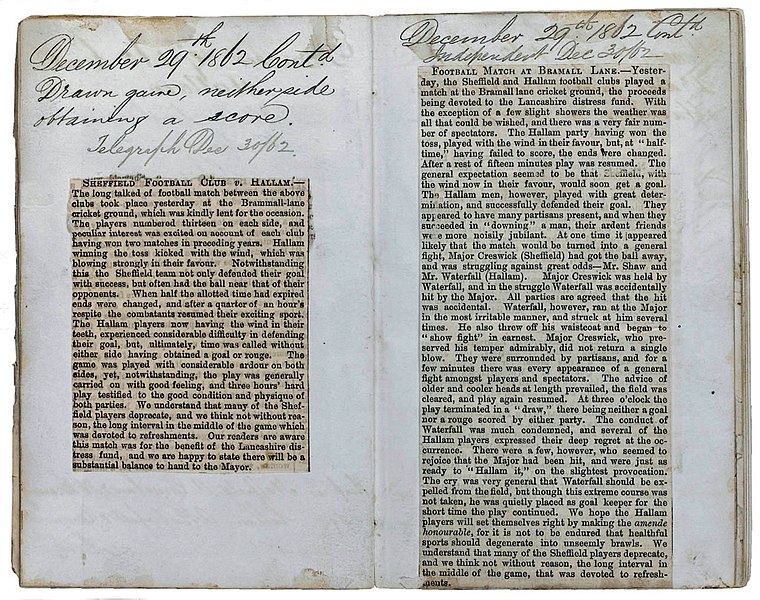 December 29.th 1862 Contd
Drawn game neither side
obtaining a score.
Telegraph Dec 30/62
SHEFFIELD FOOTBALL CLUB v. HALLAM.—
The long talked of football match between the above
clubs took place yesterday at the Brammall-lane
cricket ground, which was kindly lent for the occasion.
The players numbered thirteen on each side, and
peculiar interest was excited on account of each club
having won two matches in preceding years. Hallam
winning the toss kicked with the wind, which was
blowing strongly in their favour. Notwithstanding
this the Sheffield team not only defended their goal
with success, but often had the ball near that of their
opponents. When half the allotted time had expired
ends were changed, and after a quarter of an hour's
respite the combatants resumed their exciting sport.
The Hallam players now having the wind in their
teeth, experienced considerable difficulty in defending
their goal, but, ultimately, time was called without
either side having obtained a goal or rouge. The
game was played with considerable ardour on both
sides, yet, notwithstanding, the play was generally
carried on with good feeling, and three hours' hard
play testified to the good condition and physique of
both parties. We understand that many of the Shef-
field players deprecate, and we think not without rea-
son, the long interval in the middle of the game which
was devoted to refreshments. Our readers are aware
this match was for the benefit of the Lancashire dis-
tress fund, and we are happy to state there will be a
substantial balance to hand to the Mayor.
December 29th 1862 Contd
Independent Dec 30/62
FOOTBALL MATCH AT BRAMALL LANE.—Yester-
day, the Sheffield and Hallam football clubs played a
match at the Bramall lane cricket ground, the proceeds
being devoted to the Lancashire distress fund. With
the exception of a few slight showers the weather was
all that could be wished, and there was a very fair num-
ber of spectators. The Hallam party having won the
toss, played with the wind in their favour, but, at "half-
time," having failed to score, the ends were changed.
After a rest of fifteen minutes play was resumed. The
general expectation seemed to be that Sheffield, with
the wind now in their favour, would soon get a goal.
The Hallam men, however, played with great deter-
mination, and successfully defended their goal. They
appeared to have many partisans present, and when they
succeeded in "downing" a man, their ardent friends
were more noisily jubilant. At one time it appeared
likely that the match would be turned into a general
fight, Major Creswick (Sheffield) had got the ball away,
and was struggling against great odds—Mr. Shaw and
Mr. Waterfall (Hallam). Major Creswick was held by
Waterfall, and in the struggle Waterfall was accidentally
hit by the Major. All parties are agreed that the hit
was accidental. Waterfall, however, ran at the Major
in the most irritable manner, and struck at him several
times. He also threw off his waistcoat and began to
"show fight" in earnest. Major Creswick, who pre-
served his temper admirably, did not return a single
blow. They were surrounded by partisans, and for a
few minutes there was every appearance of a general
fight amongst players and spectators. The advice of
older and cooler heads at length prevailed, the field was
cleared, and play again resumed. At three o'clock the
play terminated in a "draw," there being neither a goal
nor a rouge scored by either party. The conduct of
Waterfall was much condemned, and several of the
Hallam players expressed their deep regret at the oc-
currence. There were a few, however, who seemed to
rejoice that the Major had been hit, and were just as
ready to "Hallam it," on the slightest provocation.
The cry was very general that Waterfall should be ex-
pelled from the field, but though this extreme course was
not taken, he was quietly placed as goal keeper for the
short time the play continued. We hope the Hallam
players will set themselves right by making the amende
honourable, for it is not to be endured that healthful
sports should degenerate into unseemly brawls. We
understand that many of the Sheffield players deprecate,
and we think not without reason, the long interval in
the middle of the game, that was devoted to refresh-
ments.